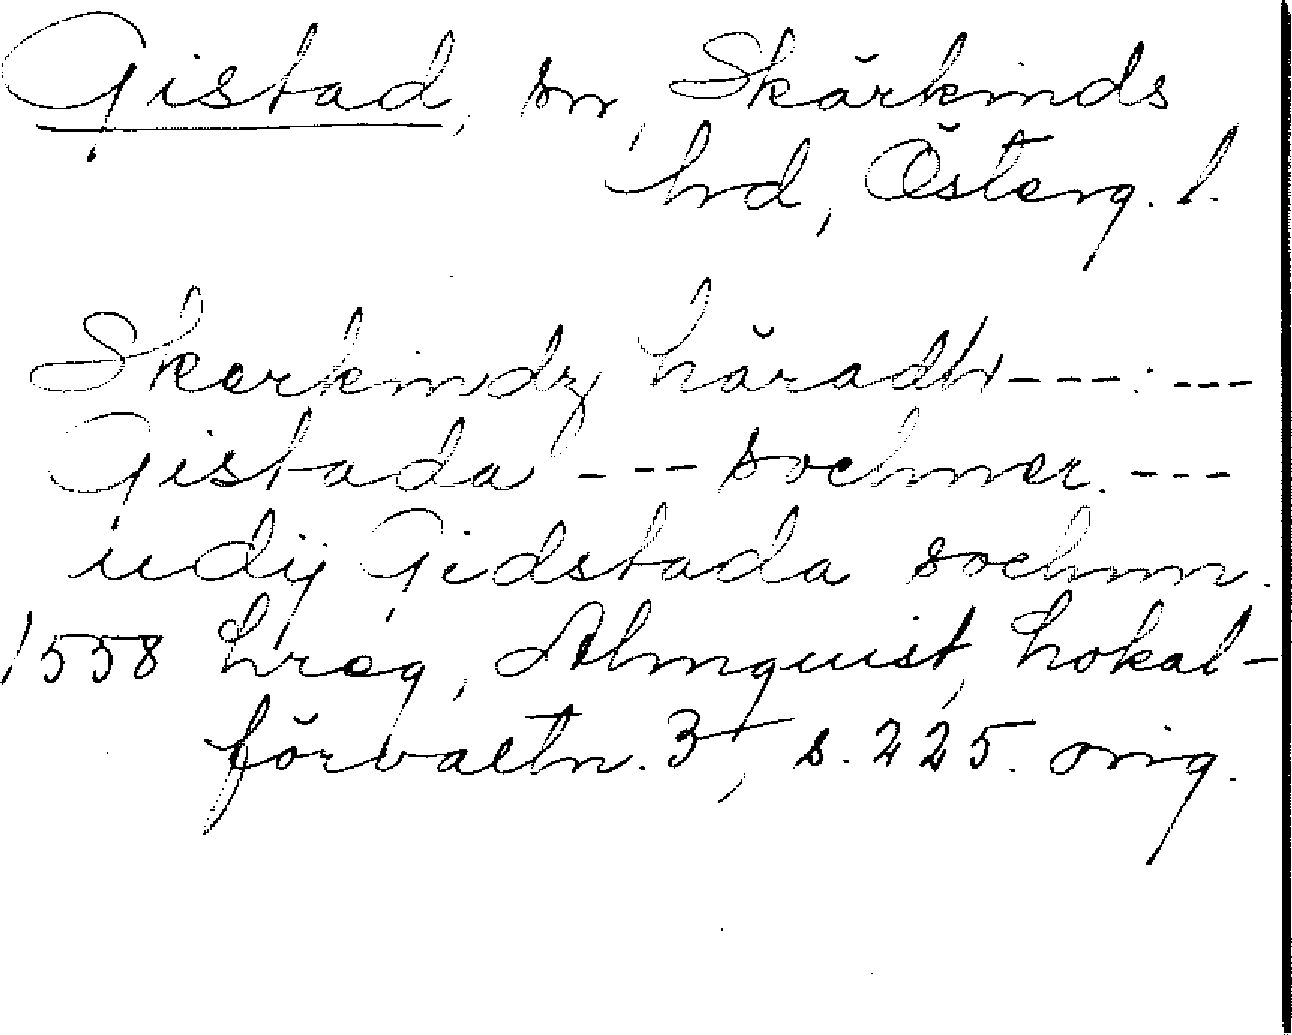 Gistad, sn, Skärkinds
hrd, Österg. l.
Skerkindz häradh---:---
Gistada --- sochner. ---
udij Gidstada sochnn.
1558 hreg, Almquist, Lokal-
förvaltn. 3, s. 225. orig.